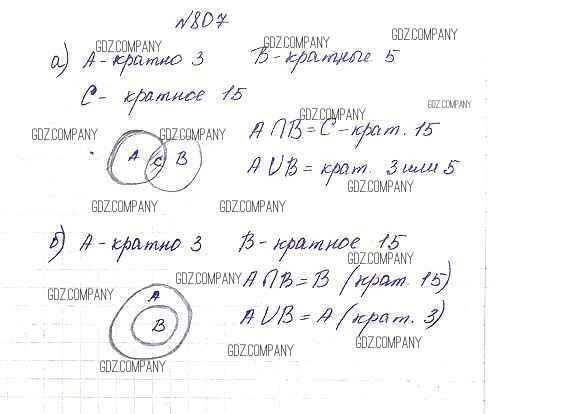 №807
GDZ.COMPANY GDZ.COMPANY GDZ.COMPANY
а) А - кратно 3 В - кратные 5
С - кратное 15
GDZ.COMPANY
GDZ.COMPANY
GDZ.COMPANY GDZ.COMPANY
А ∩ В = С - крат. 15
А С В
А U В = крат. 3 или 5
GDZ.COMPANY
GDZ.COMPANY GDZ.COMPANY
б) А - кратно 3 В - кратное 15
GDZ.COMPANY
GDZ.COMPANY
А ∩ В = В (крат. 15)
GDZ.COMPANY
А
В
А U В = А (крат. 3)
GDZ.COMPANY
GDZ.COMPANY
GDZ.COMPANY